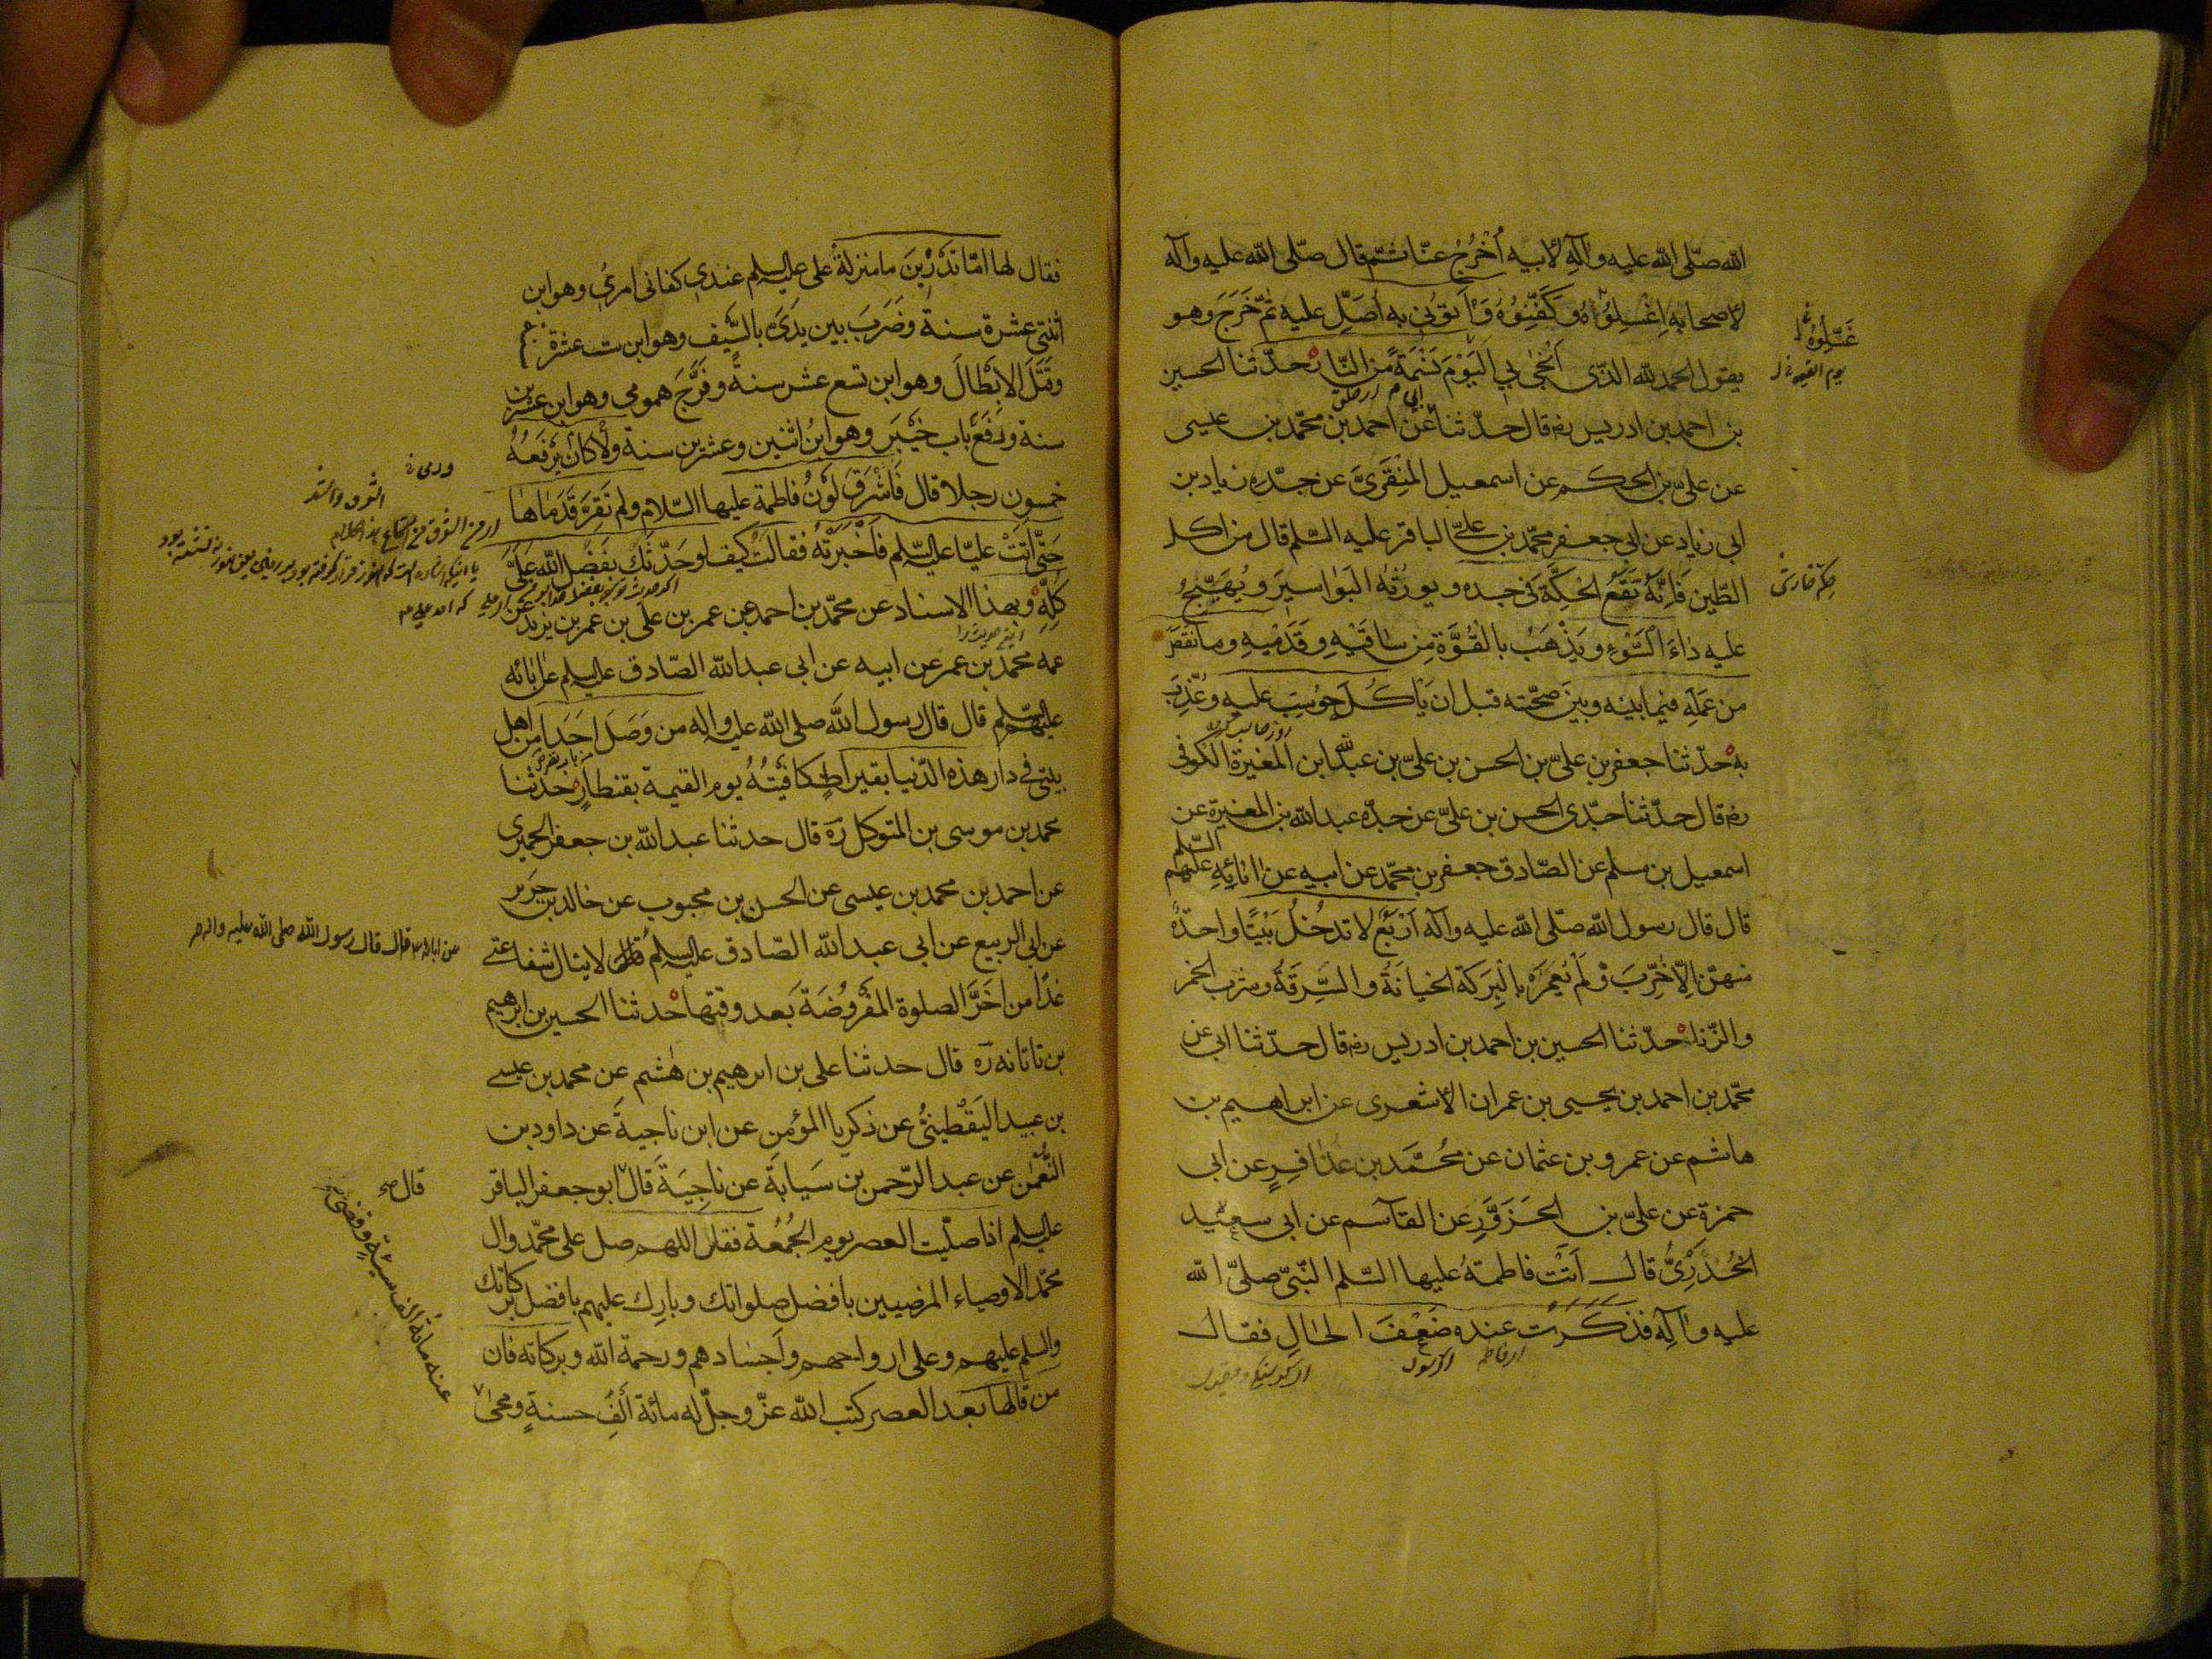 الله صلّى الله عليه وآله لأبيه أُخْرُجْ عنّا ثمّ قال صلّى الله عليه وآله
لاصحابه اِغْسِلُوُاهُ وَكَفِّنُوُهُ وَاْتوُنىِ به اُصَلِّ عليه ثمّ خَرَجَ وهو
يقول الحمد لله الذّى اَنْجٰى بى اليَوْمَ نَسْمَةً من النّار حدّثنا الحسين
بن احمد بن ادريس ره قال حدّثنا عن احمد بن محمّد بن عيسى
ابى
غَسِّلُوُهُ
عن علىّ بن الحكم عن اسمعيل المِنْقَرىّ عن جدّه زياد بن
ابى زياد عن ابى جعفر محمّد بن علىّ الباقر عليه السّلم قال من اكل
الطّين فَاِنَّهُ تَقَعُ الحِكَّةُ فى جسده ويورثهُ البَوٰاسيرَ ويُهَيِّجُ
عليه داءَ السَّوْءِ ويَذْهَبُ بالقُوَّةِ مِن ساقَيْهِ وقَدَمَيْهِ وما نَقَصَ
من عَمَلِهِ فيما بينه وبَيْنَ صحّته قبل ان يَاكُلَ حُوسِبَ عليه وعُذِّبَ
به حدّثنا جعفر بن علىّ بن الحسن بن علىّ بن عبد الله ابن المغيرة الكوفى
ره قال حدّثنا جدّى الحسن بن علىّ عن جدّه عبد الله بن المغيرة عن
اسمعيل بن مسلم عن الصّادق جعفر بن محمّد عن ابيه عن اٰبائِهِ عليهم السّلم
قال قال رسول الله صلّى الله عليه وآله اَرْبَعٌ لا تدخُلُ بَيْتًا واحدةٌ
منهنّ اِلاّ خُرِّبَ وَلَمْ يُعمَرْ بِالْبَرَكة الخيانَةُ والسَّرِقَةُ وشرب الخمر
والزّنا حدّثنا الحسين بن احمد بن ادريس ره قال حدّثنا ابى عن
محمّد بن احمد بن يحيى بن عمران الأشعرى عن ابراهيم بن
هاشم عن عمرو بن عثمان عن محُمَّد بن عُذٰافِرٍ عن ابى
حمزة عن علىّ بن الحَزَوَّرِ عن القاسم عن ابى سعيد
الخُدْرِىُّ قال اَتَتْ فاطمةُ عليها السّلم النّبىّ صلىّ الله
عليه واٰلِهِ فذكَرَتْ عنده ضَعْفَ الحٰالِ فقال
فقال لها امّا تَدْرِينَ ما منزلةُ على عليه السلم عندى كفانى امرى وهو ابن
اثنتى عشرة سنة وضَرَبَ بين يدىَّ بالسَّيف وهو ابن ست عشرة
وقَتَلَ الابْطالَ وهو ابن تسع عشر سنةً وفَرَّجَ همومى وهو ابن عشرين
سنة ورَفَعَ باب خَيْبَر وهو ابنُ اثنين وعشرين سنة ولا كان يَرْفَعُهُ
خمسون رجلا قال فَاَشْرَقَ لَوْنُ فاطمة عليها السّلام ولم تَقِرَّ قَدَماهٰا
حَتّى اَتَتْ عليّا عليه السّلم فَاَخْبَرَتْهُ فقالتْ كيف لو حَدّثَكَ بفَضْلِ الله عَلَىَّ
كُلِّهِ وبهذا الاسناد عن محمّد بن احمد عن عمر بن على بن عمر بن يزيد عن
عمه محمد بن عمر عن ابيه عن ابى عبد الله الصّادق عليه السلم عن اٰبائه
عليهم السّلم قال قال رسول الله صلى الله عليه واله من وَصَلَ احَدًا مِن اهل
بيتى فى دار هذه الدّنيا بقيراطٍ كافَيْتُهُ يوم القيمة بقنطارٍ حدّثنا
محمد بن موسى بن المتوكل ره قال حدثنا عبد الله بن جعفر الحميرى
عن احمد بن محمد بن عيسى عن الحسن بن محبوب عن خالد بن جَرير
عن ابى الربيع عن ابى عبد الله الصّادق عليه السلم قال لا ينال شفاعتى
عن ابائه عم قال قال رسول الله صلى الله عليه واله
غدًا من اَخَّرَ الصلوة المَفْرُوُضَةَ بَعد وقتها حدثنا الحسين بن ابرهيم
بن تاتانه ره قال حدثنا على بن ابرهيم بن هٰشم عن محمد بن عيسى
بن عبيد اليَقْطينىُّ عن ذكريا المؤمن عن ابن ناجيةَ عن داود بن
النُّعْمٰن عن عبد الرّحمن بن سَيابَةَ عن ناجِيَةَ قال ابو جعفر الباقر
قال صح
عليه السلم اذا صلّيت العصر يوم الجُمُعة فقل اللهم صل على محمّد وال
محمّد الاوصياء المرضيين بافضل صلواتك وبارِك عليهم بافضل بركاتك
والسلم عليهم وعلى ارواحهم واَجسادهم ورحمة الله وبركاته فان
من قالها بعد العصر كتب الله عزّ وجلّ له مائة اَلفَ حسنةٍ ومحىٰ
عنه مائة الف سيئةٍ وقضى